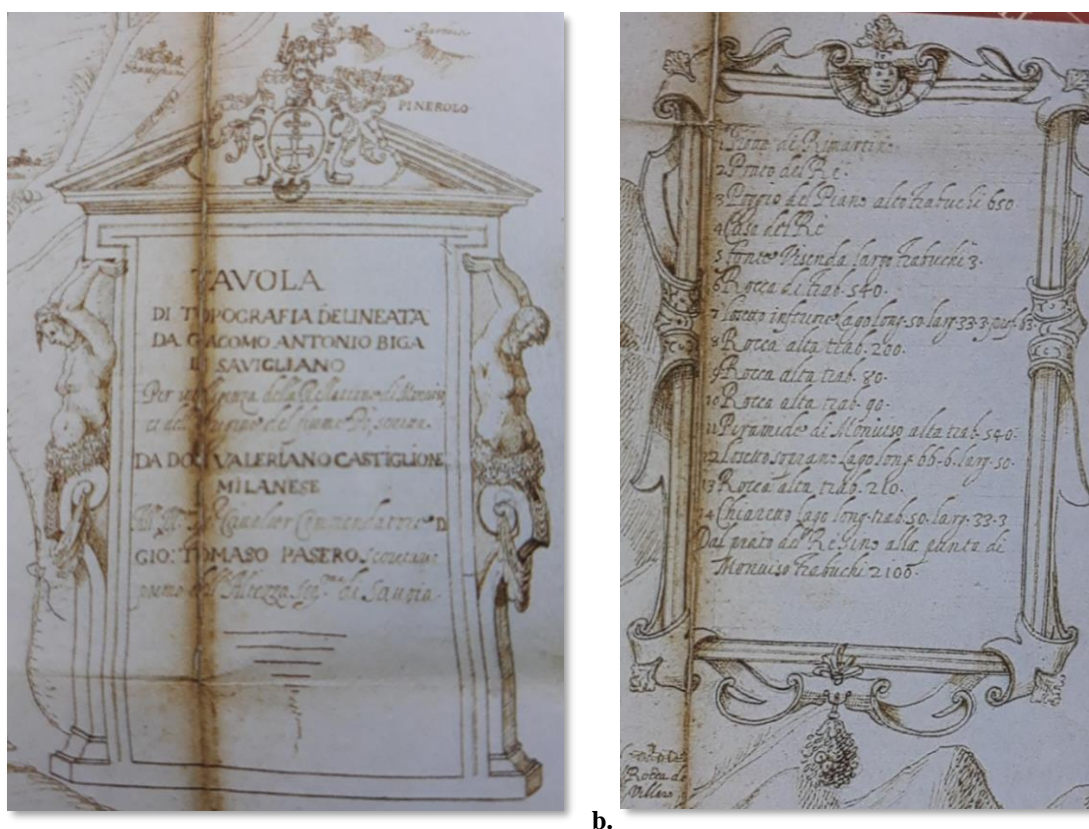 PINEROLO
TAVOLA
DI TOPOGRAFIA DELINEATA
DA GIACOMO ANTONIO BIGA
DI SAVIGLIANO
Per della Relatione di Monviso
et del fiume Pò,
DA DON VALERIANO CASTIGLIONE
MILANESE
Cavalier Commendatore D.
GIO: TOMASO PASERO
primo dell'Altezza di Savoia
1 di Rimartin
2 Prato del Re.
3 Poggio del Piano alto trabuchi 650
4 Case del Rè
5 Fonte Visenda largo trabuchi 3.
6 Rocca di trab. 540.
7 Losetto Lago long. 50. larg. 33.3. 63.
8 Rocca alta trab. 200.
9 Rocca alta trab. 80.
10 Rocca alta trab. 90.
11 Piramide di Monviso alta trab. 540.
12 Losetto soprano Lago long. 66.6. larg. 50.
13 Rocca alta trab. 210.
14 Chiaretto Lago long. trab. 50. larg. 33.3
Dal prato del Re sino alla punta di
Monviso trabuchi 2100
Rocca de
Villers
b.